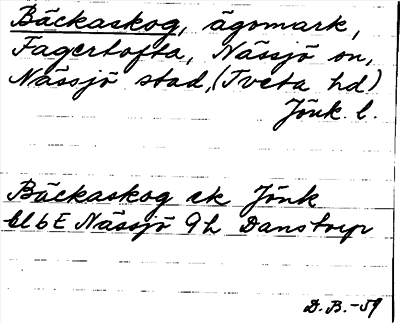 Bäckaskog, ägomark,
Fagertofta, Nässjö on,
Nässjö stad, (Tveta hd)
Jönk. l.
Bäckaskog ek Jönk
bl 6E Nässjö 9h Danstorp
D.B.-59